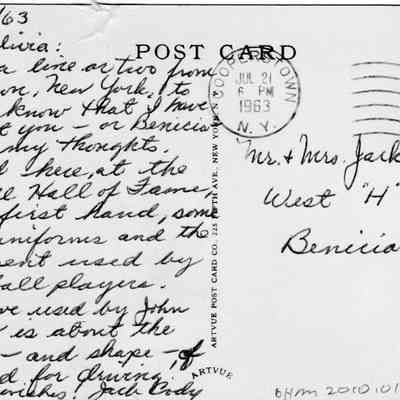 /63
livia:
a line or two from
on, New York, to
know that I have
t you - or Benicia
my thoughts.
d here, at the
e Hall of Fame,
first hand, some
uniforms and the
ent used by
all players.
ve used by John
r is about the
- and shape - of
d for driving
wishes. Jack Cody
POST CARD
COOPERSTOWN
JUL 21
6 PM
1963
N. Y.
Mr. & Mrs. Jack
West "H"
Benicia
ARTVUE POST CARD CO. 225 FIFTH AVE. NEW YORK N
ARTVUE
BHM 2010.01